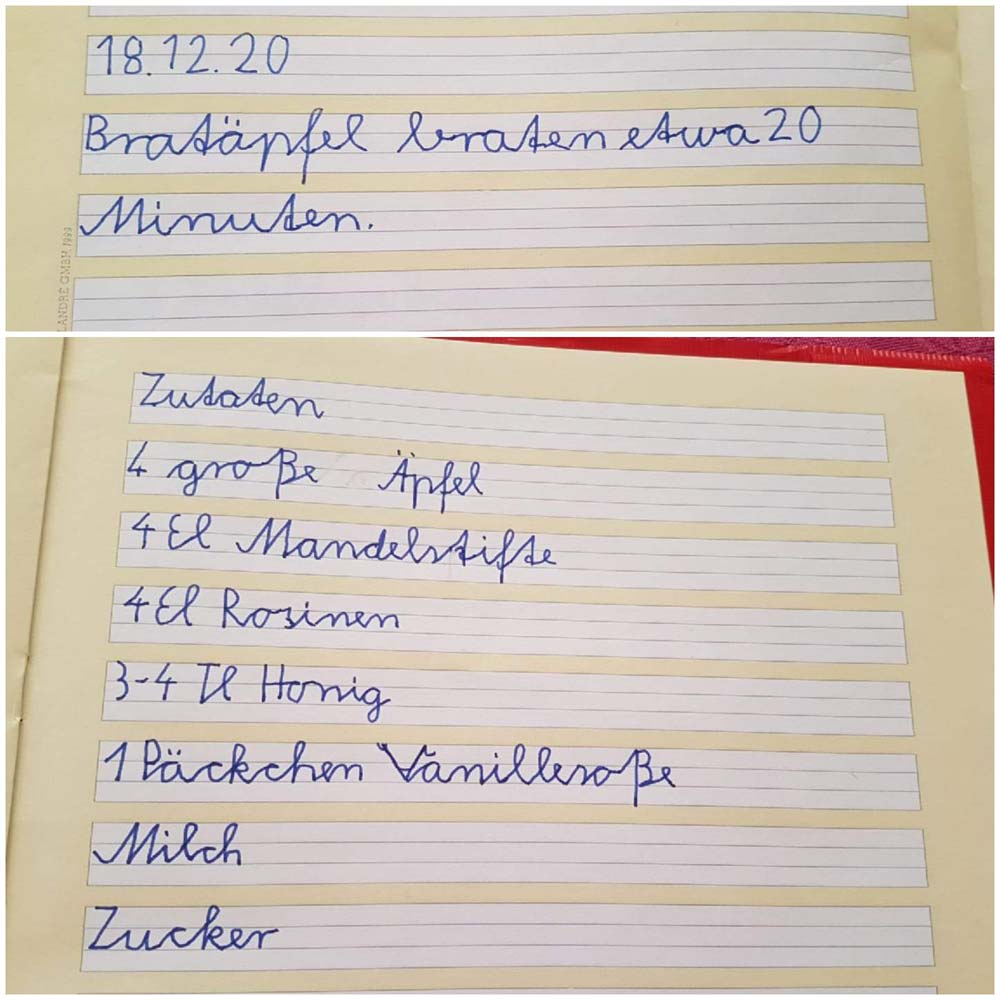 18.12.20
Bratäpfel braten etwa 20
Minuten.
LANDRÉ GMBH 1999
Zutaten
4 große Äpfel
4 El Mandelstifte
4 El Rosinen
3-4 Tl Honig
1 Päckchen Vanillesoße
Milch
Zucker